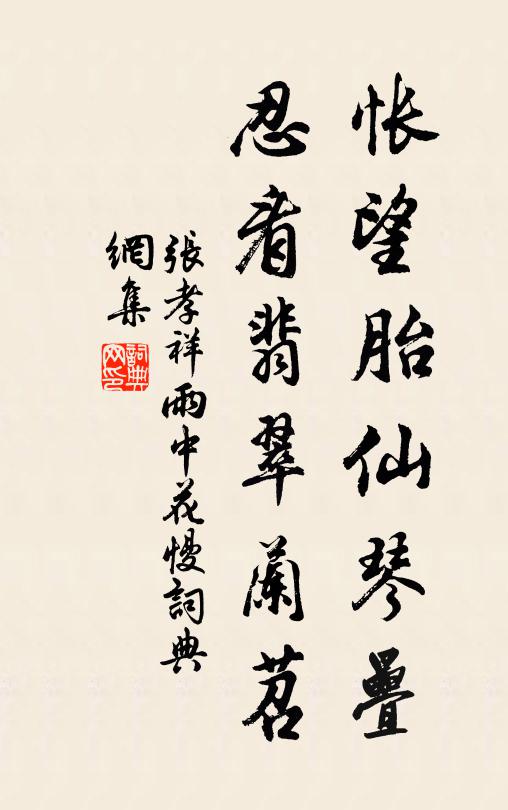 悵望胎仙琴疊
忍看翡翠蘭苕
張孝祥雨中花慢詞典
網集
詞典網印